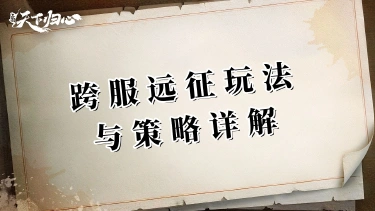 天下归心
跨服远征玩法
与策略详解